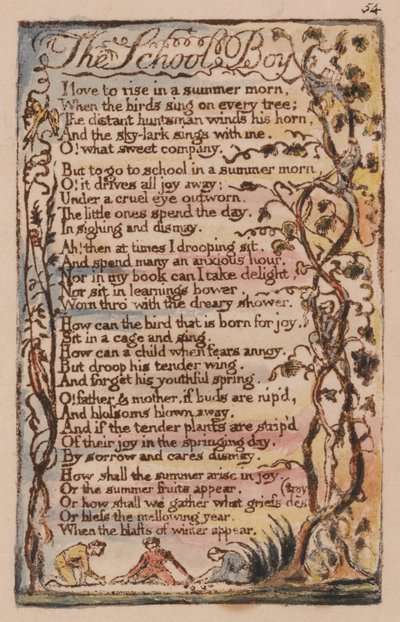 54
The School Boy
I love to rise in a summer morn,
When the birds sing on every tree;
The distant huntsman winds his horn,
And the sky-lark sings with me.
O! what sweet company.
But to go to school in a summer morn
O! it drives all joy away;
Under a cruel eye outworn.
The little ones spend the day.
In sighing and dismay.
Ah! then at times I drooping sit,
And spend many an anxious hour,
Nor in my book can I take delight,
Nor sit in learnings bower,
Worn thro' with the dreary shower.
How can the bird that is born for joy,
Sit in a cage and sing.
How can a child when fears annoy.
But droop his tender wing.
And forget his youthful spring.
O! father & mother, if buds are nip'd,
And blossoms blown away.
And if the tender plants are strip'd
Of their joy in the springing day,
By sorrow and cares dismay.
How shall the summer arise in joy.
Or the summer fruits appear.
(troy
Or how shall we gather what griefs des
Or bless the mellowing year.
When the blasts of winter appear.